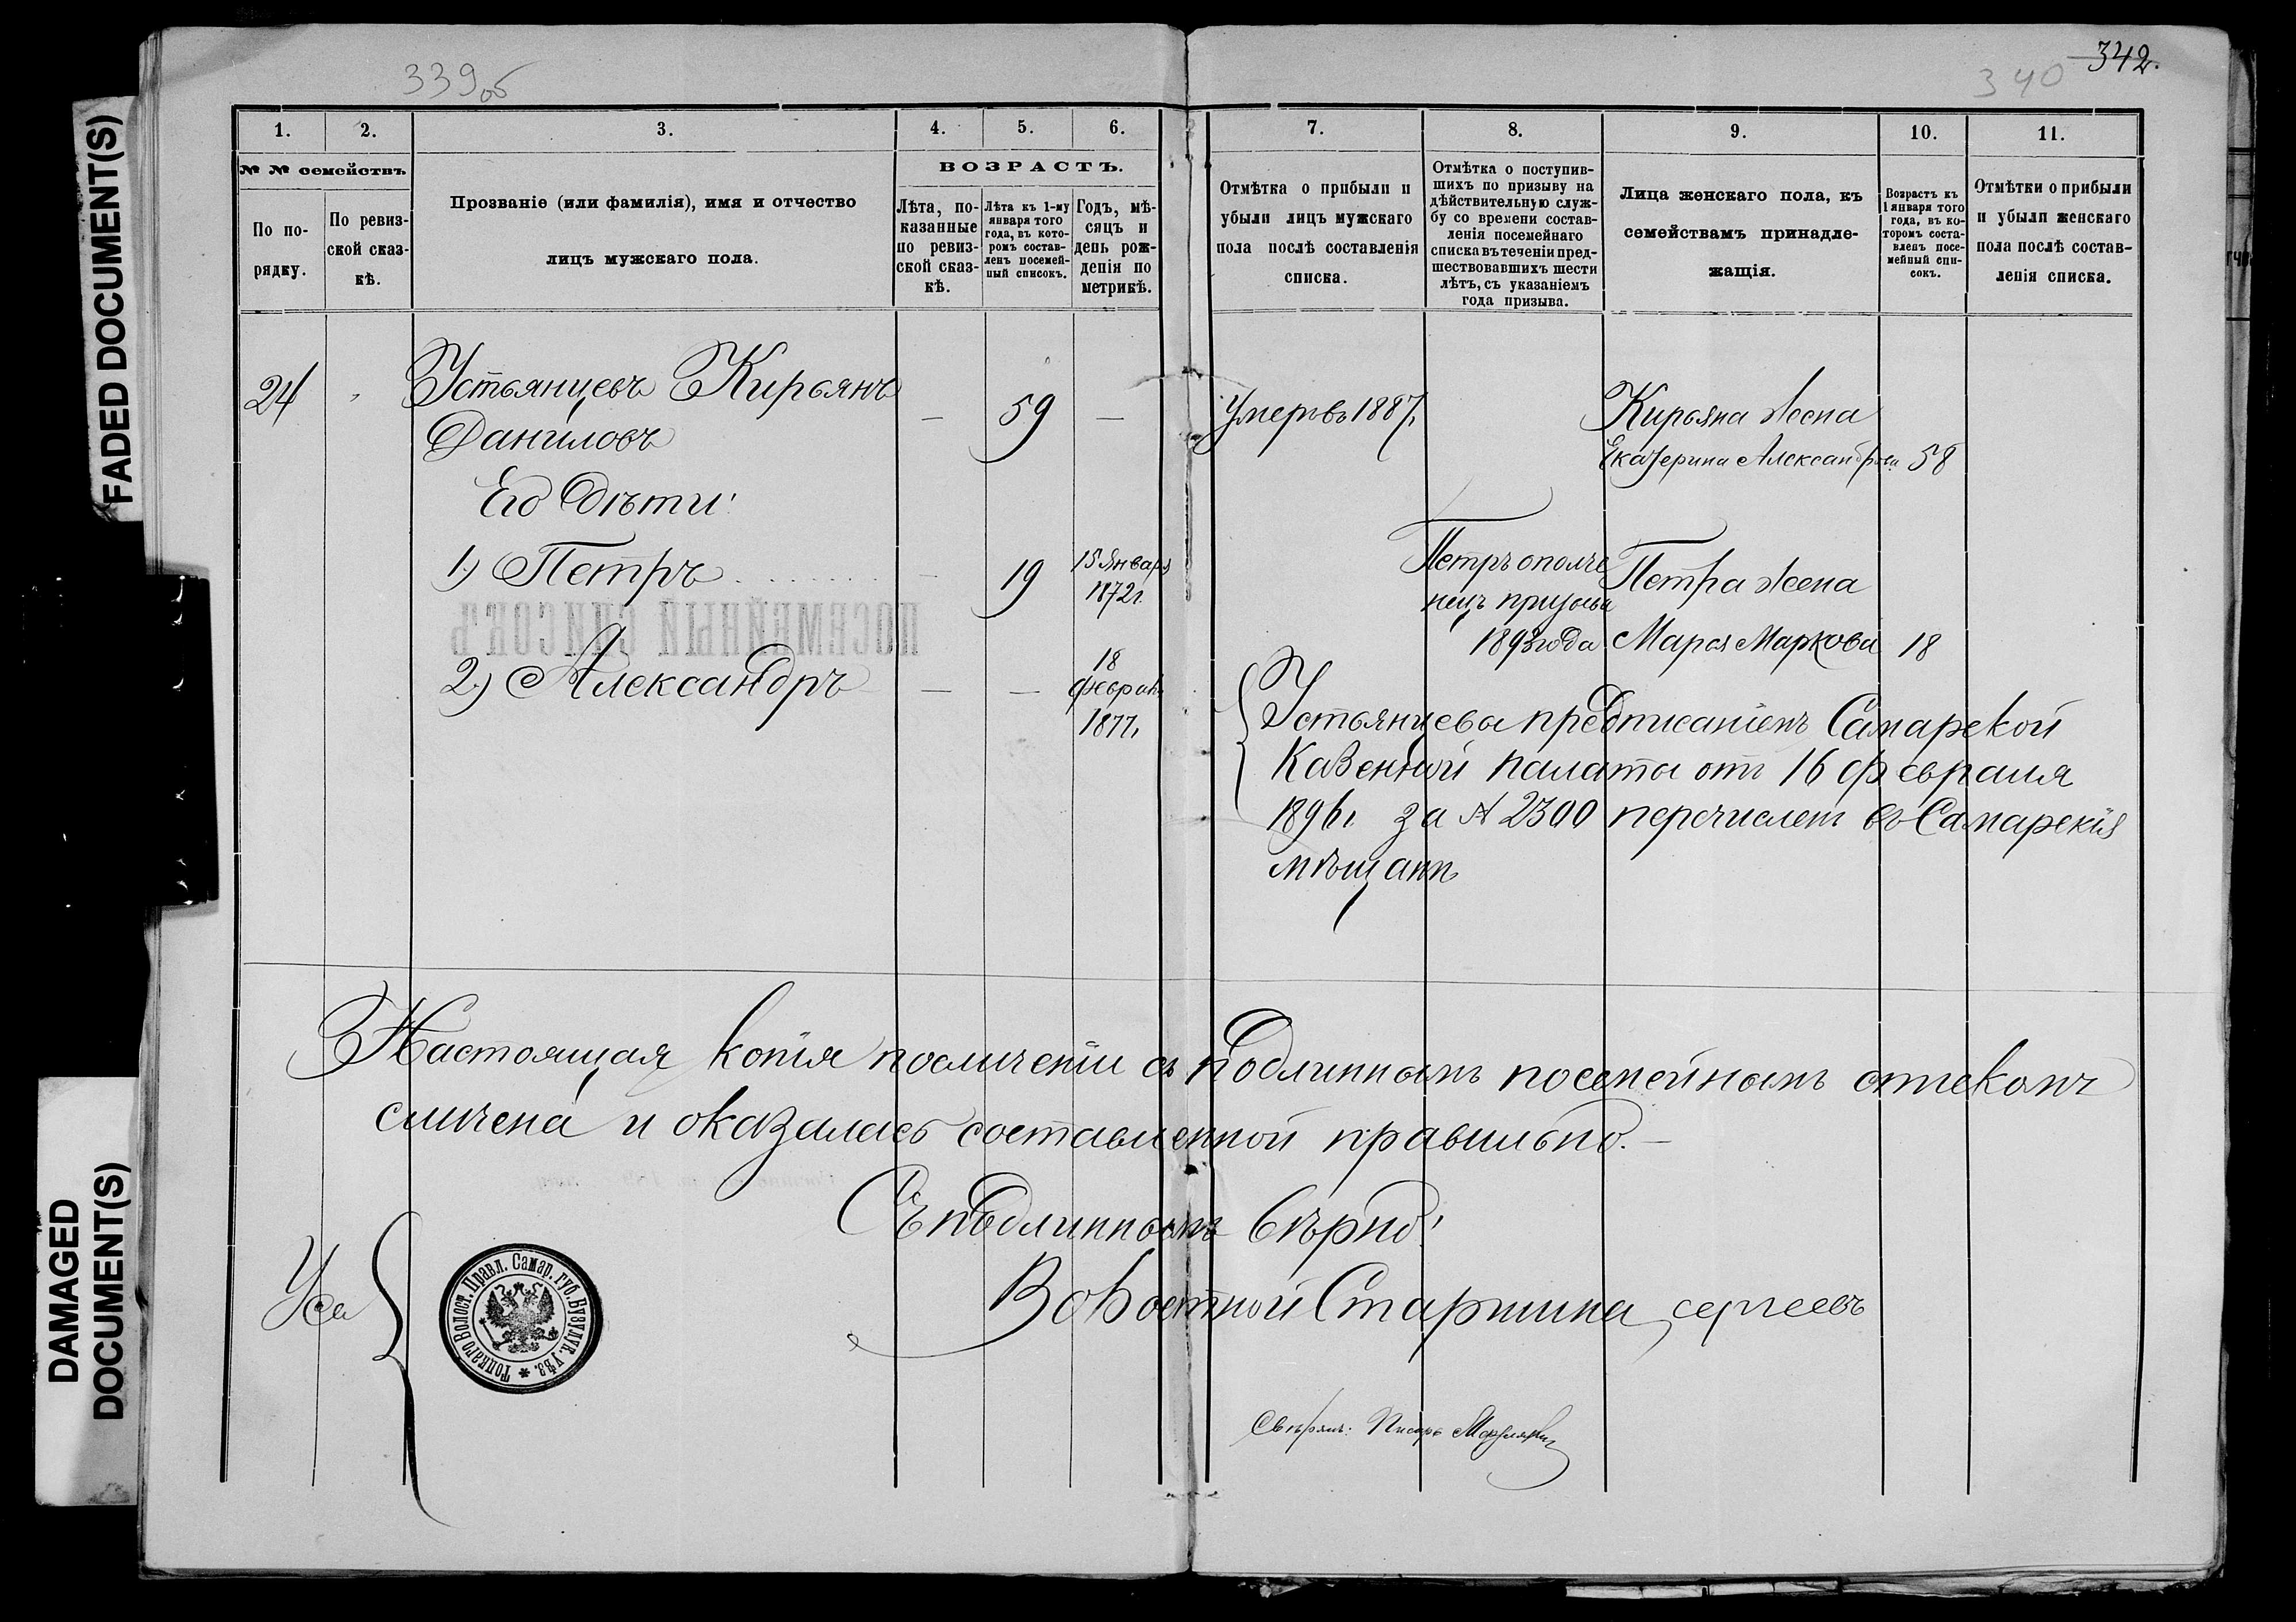 FADED DOCUMENT(S)
DAMAGED
DOCUMENT(S)
339об
340
342.
1.
2.
3.
4.
5.
6.
№ № семействъ
По по-
рядку.
По ревиз-
ской сказ-
кѣ.
Прозваніе (или фамилія), имя и отчество
лицъ мужскаго пола.
ВОЗРАСТЪ.
Лѣта, по-
казанные
по ревиз-
ской сказ-
кѣ.
Лѣта къ 1-му
января того
года, въ кото-
ромъ состав-
ленъ посемей-
ный списокъ.
Годъ, мѣ-
сяцъ и
день рож-
денія по
метрикѣ.
7.
8.
9.
10.
11.
Отмѣтка о прибыли и
убыли лицъ мужскаго
пола послѣ составленія
списка.
Отмѣтка о поступив-
шихъ по призыву на
дѣйствительную служ-
бу со времени состав-
ленія посемейнаго
списка въ теченіи пред-
шествовавшихъ шести
лѣтъ, съ указаніемъ
года призыва.
Лица женскаго пола, къ
семействамъ принадле-
жащія.
Возрастъ къ
1 января того
года, въ ко-
торомъ соста-
вленъ посе-
мейный спи-
сокъ.
Отмѣтки о прибыли
и убыли женскаго
пола послѣ состав-
ленія списка.
24
Устьянцевъ Кирьянъ
Даниловъ
— 59 —
Умеръ въ 1887г
Кирьяна жена
Екатерина Александрова 58
Его Дѣти:
1) Петръ
19
15 Января
1872г.
Петръ ополче
нецъ призыва
1893 года
Петра жена
Марья Маркова 18
ПОСЕМЕЙНЫЙ СПИСОКЪ
2) Александръ — —
18
февраля
1877г
Устьянцевы предписаніемъ Самарской
Казенной палаты отъ 16 февраля
1896г за № 2300 перечислен въ Самарскія
мѣщане
Настоящая копія по сличеніи съ подлиннымъ посемейнымъ спискомъ
сличена и оказалась составленной правильно.—
Съ подлиннымъ вѣрно!
Волостной Старшина Сергеевъ
Тоцкаго Волост. Правл. Самар. губ. Бузулук. уѣз.
Свѣрялъ: Писарь